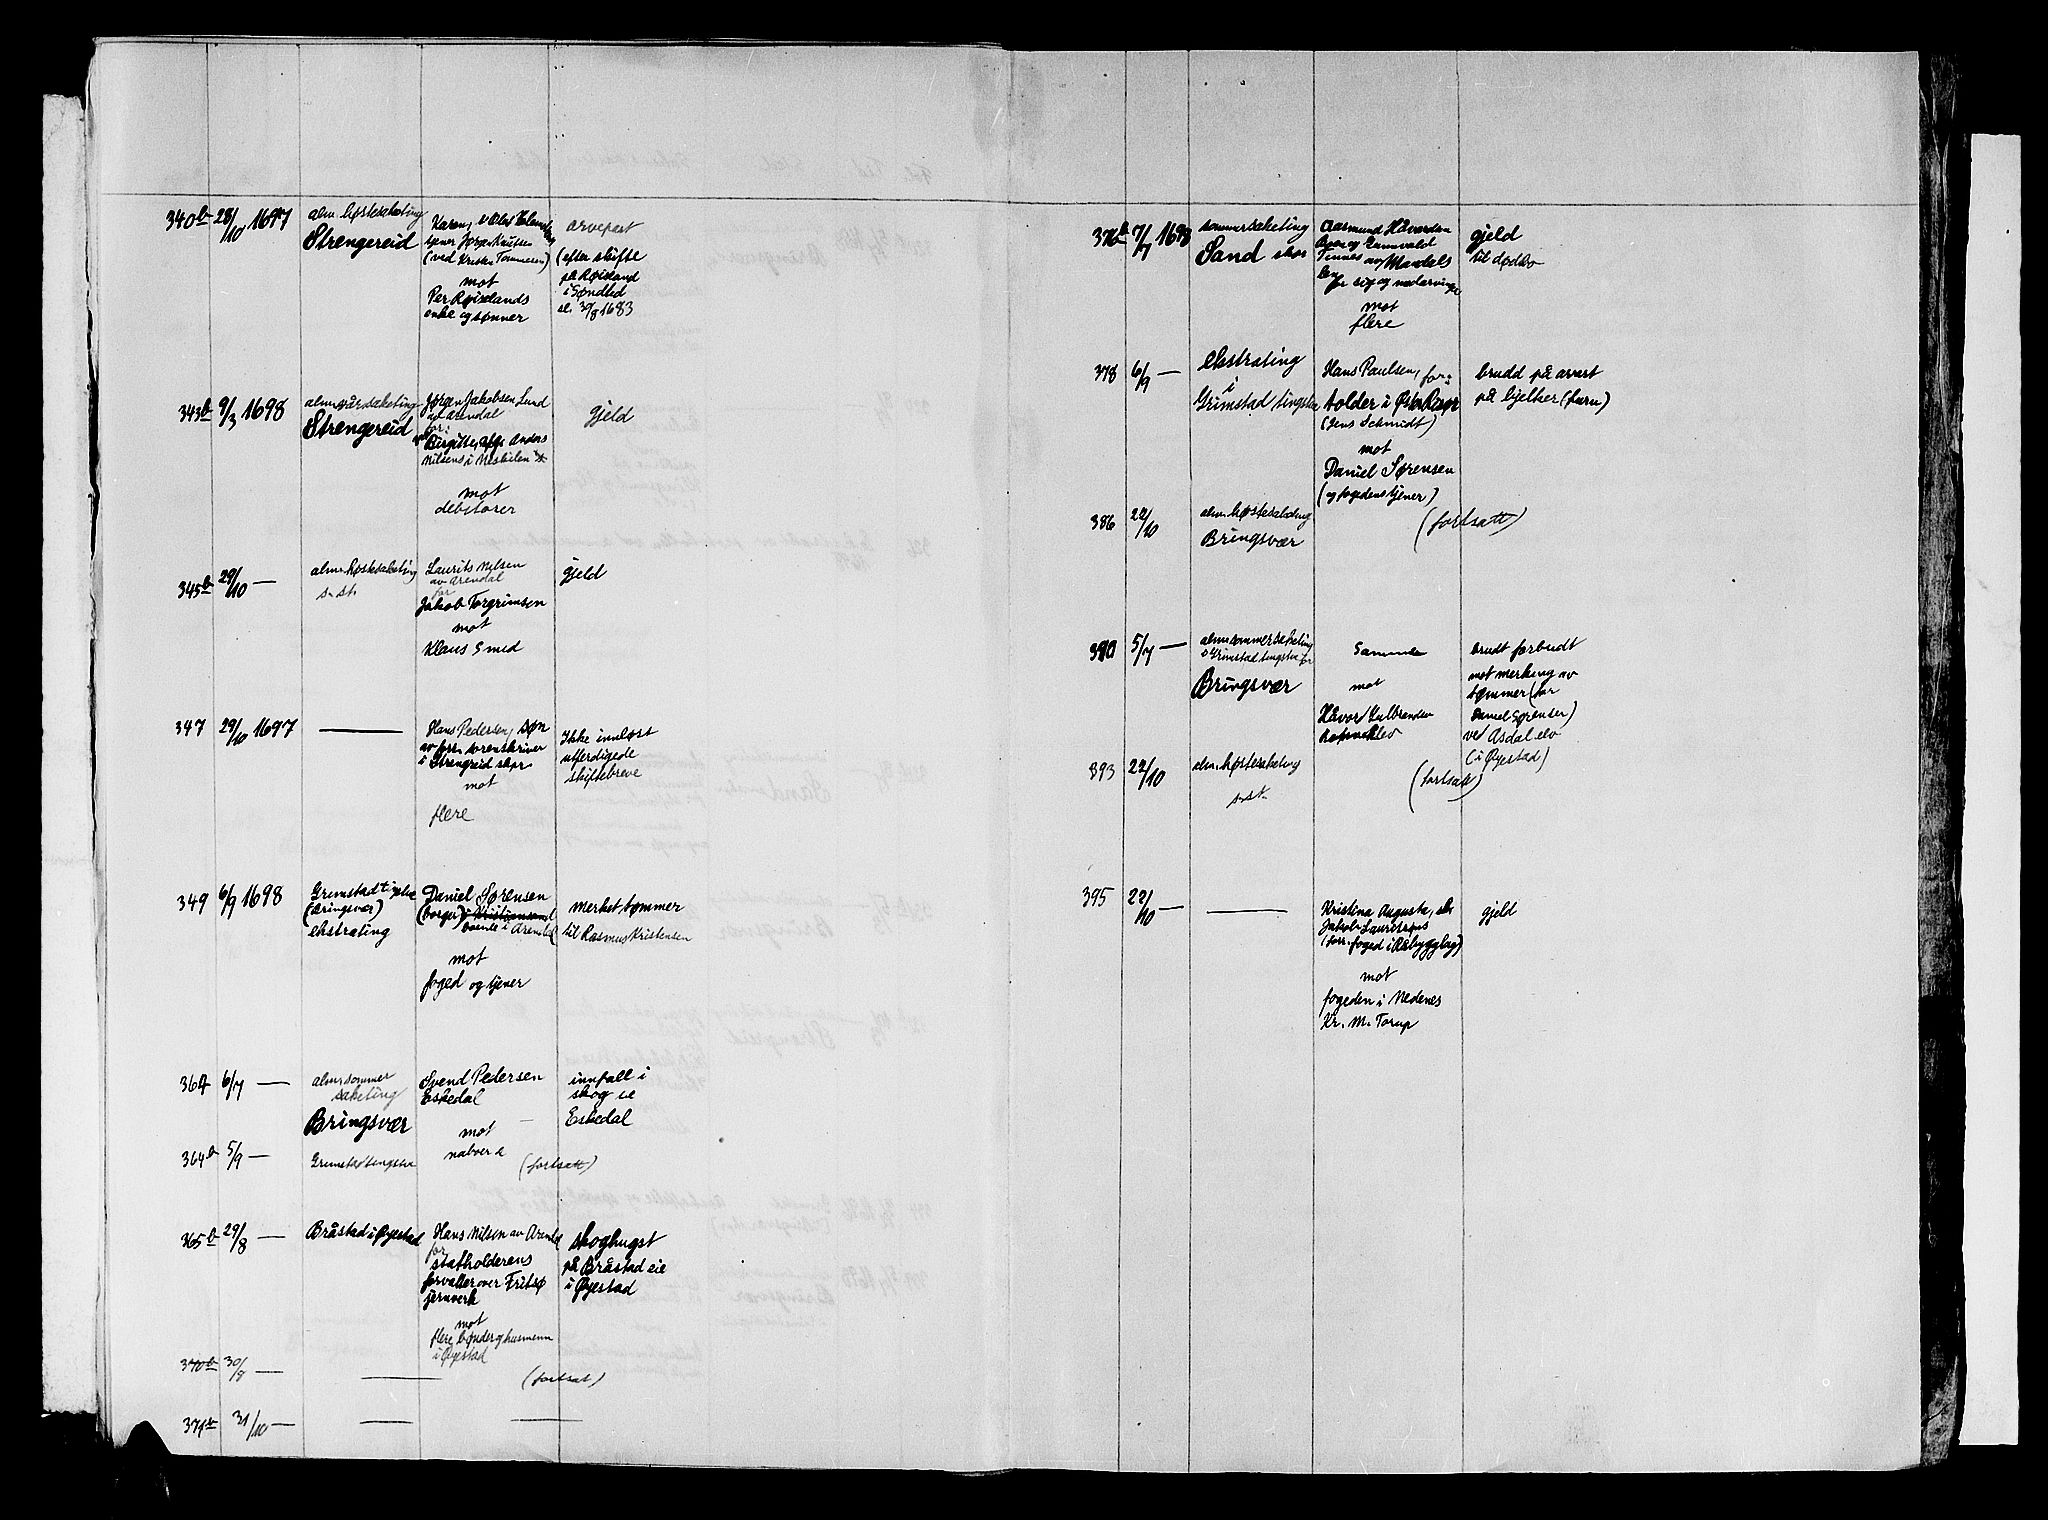 340b 28/10 1697 alm. høstesakting
Strengereid
Karen,
tjener Jørgen Knutsen
(ved Kristen Tommesen)
mot
Per Røislands
enke og sønner
arvepart
(efter skifte
på Røisland
i Søndled
30/8 1683
343b 9/3 1698 alm. vårsakting
Strengereid
Jørgen Jakobsen Lund
av Arendal
for:
Birgitte, Anders
Nilsens i Neskilen
mot
debitorer
gjeld
345b 29/10 — alm. høstesakting
s. st.
Laurits Nilsen
av Arendal
for
Jakob Torgrimsen
mot
Klaus Smed
gjeld
347 29/10 1697 —
Hans Pedersen, søn
av forr. sorenskriver
i Strengereid skpr.
mot
flere
Ikke innløst
utferdigede
skiftebreve
349 6/9 1698 Grimstad tingstue
(Bringsvær)
ekstrating
Daniel Sørensen
(borger i Kristiansand
boende i Arendal)
mot
foged og tjener
merket tømmer
til Rasmus Kristensen
364 6/7 — alm. sommer
sakting
Bringsvær
Svend Pedersen
Eskedal
mot
naboer
innfall i
skog
Eskedal
364b 5/9 — Grimstad tingstue (fortsatt)
365b 29/8 — Bråstad i Øyestad
Hans Nilsen av Arendal
for
statholderens
forvalter over Fritsø
jernverk
mot
flere bønder og husmenn
i Øyestad
skoghugst
på Bråstad eie
i Øyestad
370b 30/8 — — (fortsat)
371b 31/10 — — —
376b 7/7 1698 sommersakting
Sand skpr
Aasmund Håvorden
og Gunnvald
Tinnes av Mandals
len for sig og medarvinger
mot
flere
gjeld
til dødbo
378 6/9 — ekstrating
i
Grimstad tingstue
Hans Paulsen, for:
tolder i Øster Risør
(Jens Schmidt)
mot
Daniel Sørensen
(og fogedens tjener)
brudd på arrest
på bjelker (furu)
386 22/10 alm. høstesakting
Bringsvær
(fortsatt)
390 5/7 — alm. sommersakting
Grimstad tingstue for
Bringsvær
Samme
mot
Håvor Gulbrandsen
brudt forbudt
mot merking av
tømmer (for
Daniel Sørensen)
ved Asdal elv
(i Øyestad)
393 22/10 alm. høstesakting
s. st.
(fortsatt)
395 22/10 — —
Kristina Augusta,
Jakob Lauritsens
(forr. foged i Råbyggelag)
mot
fogeden i Nedenes
Kr. M. Torup
gjeld